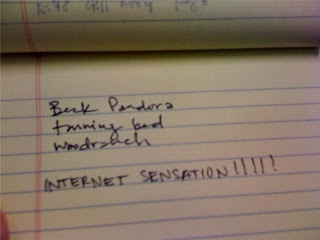 Beck Pandora
tanning bed
woodranch
INTERNET SENSATION!!!!!